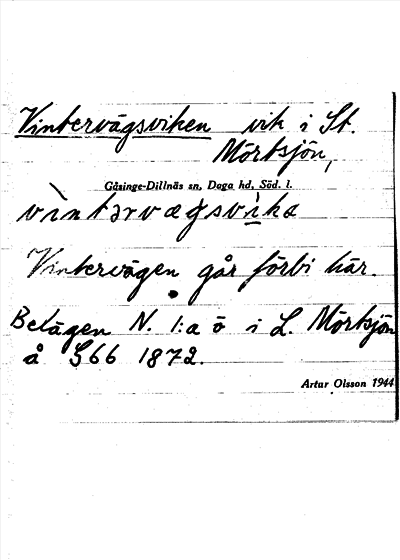 Vintervägsviken vik i St.
Mörtsjön,
Gåsinge-Dillnäs sn, Daga hd, Söd. l.
vìntərvægsvìka
Vintervägen går förbi här.
Belägen N. 1:a ö i L. Mörtsjön
å S66 1872.
Artur Olsson 1944